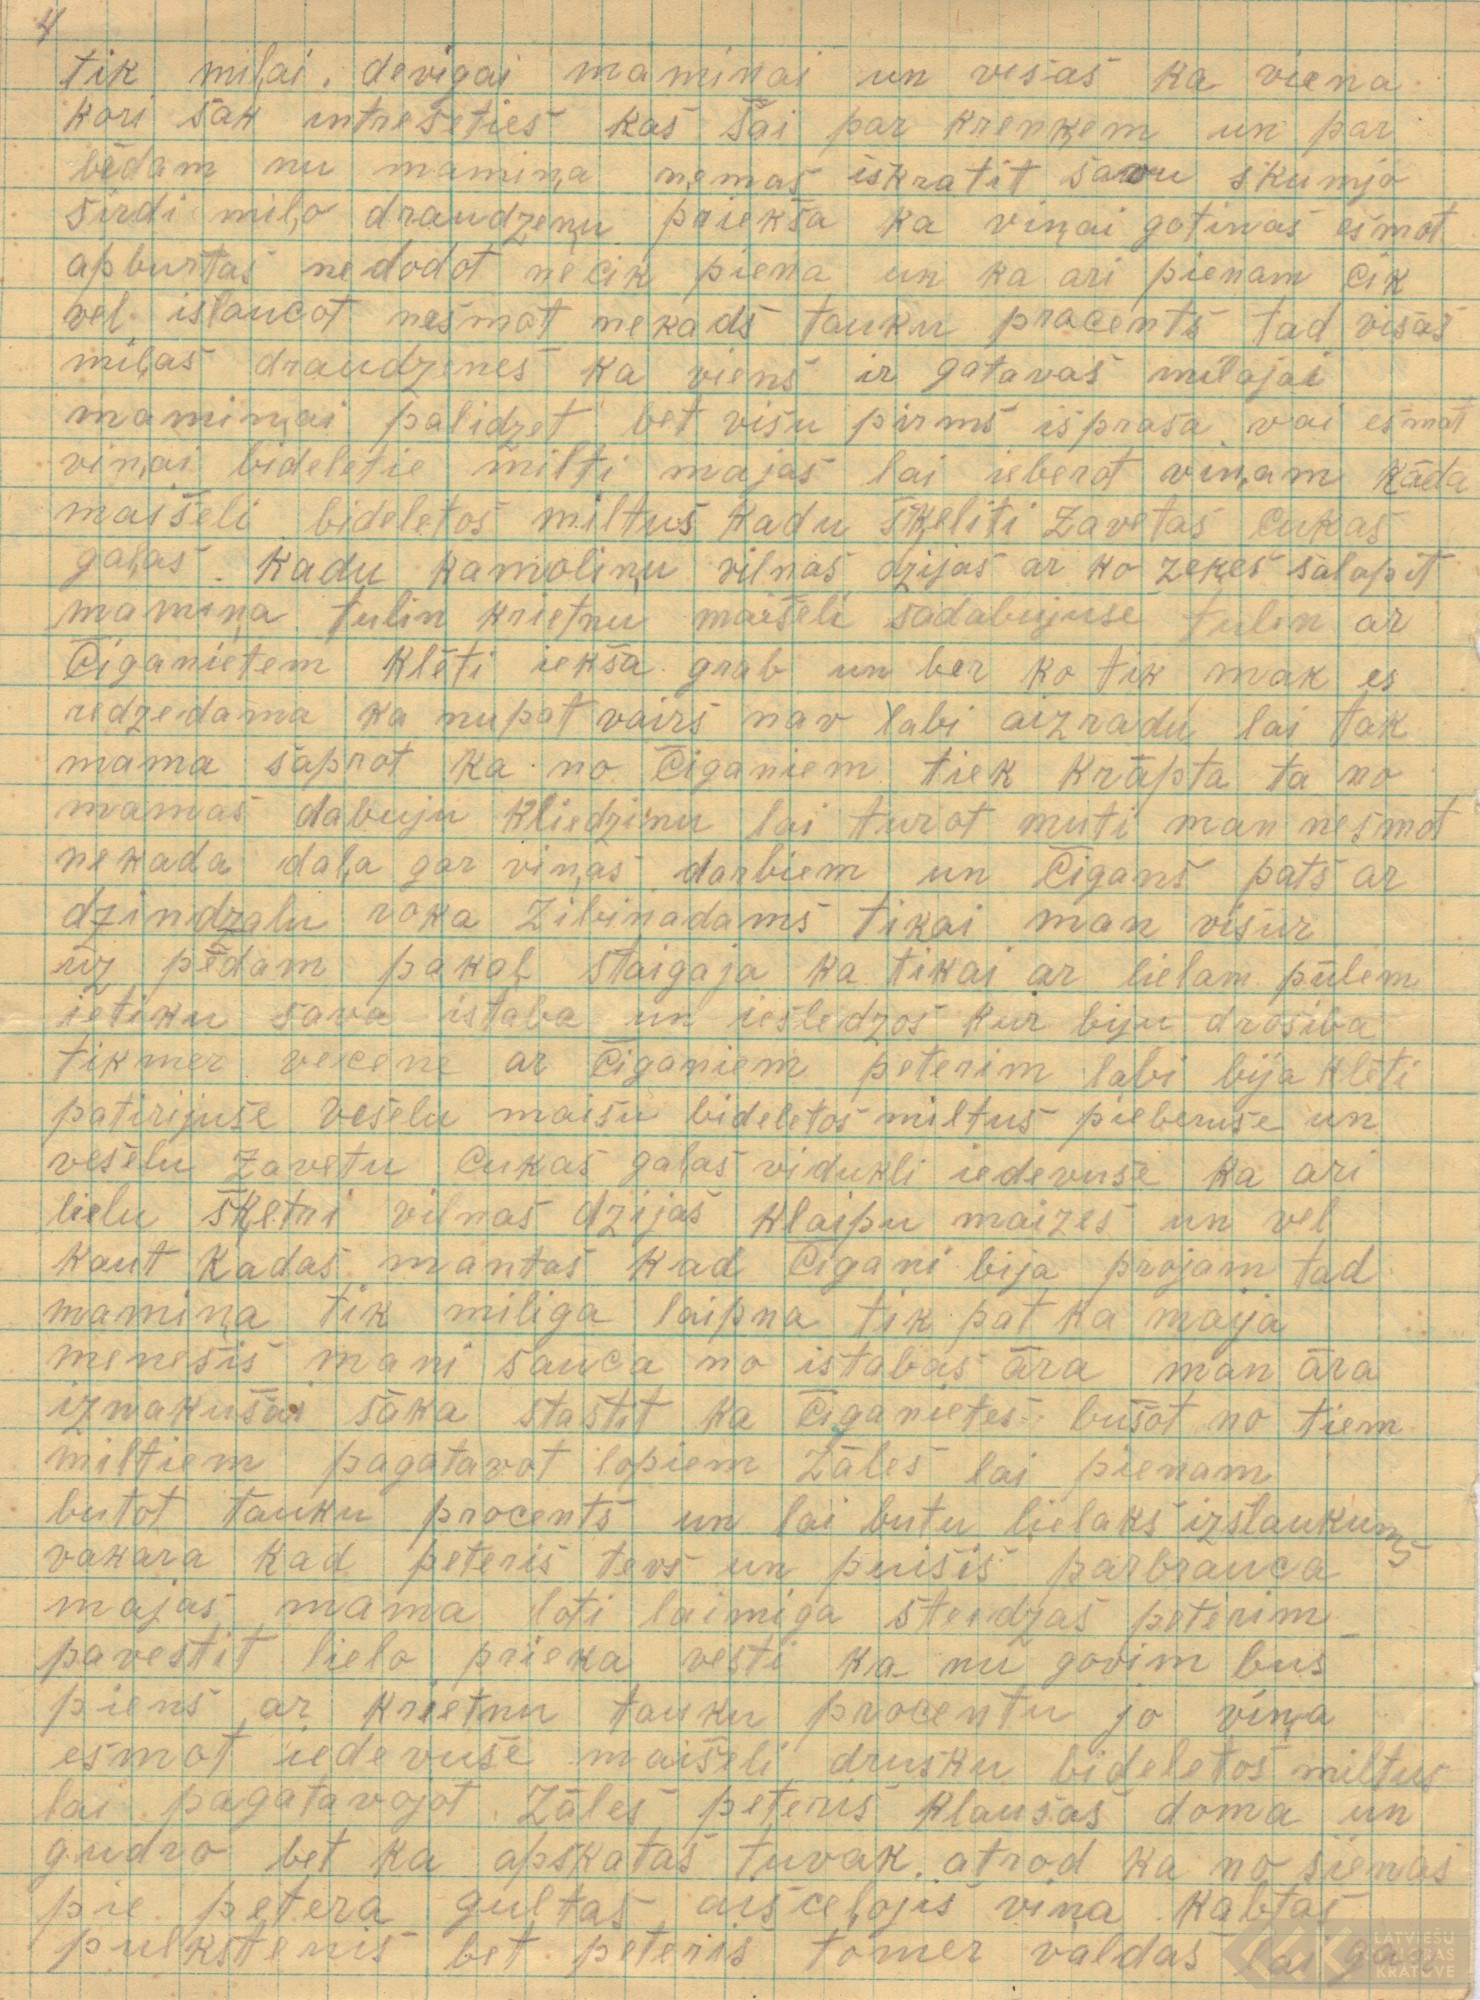 4
tik miļai, devigai maminai un vesas ka viena
kori sak intresēties kas šai par kreņķem un par
bēdam nu mamiņa ņemas iskratit savu skumjo
sirdi miļo draudzeņu priekša ka viņai gotinas esmot
apburtas nedodot necik piena un ka ari pienam cik
vel islaucot nesmot nekads tauku procents tad visas
miļas draudzenes ka viens ir gatavas milajai
mamiņai palidzet bet visu pirms isprasa vai esmot
viņai bideletie milti majas lai ieberot viņam kāda
maišeli bideletos miltus kadu šķeliti zavetas cukas
gaļas. kadu kamoliņu vilnas dzijas ar ko zeķes salapit
mamiņa tulin krietnu maišeli sadabujuse tulin ar
Čiganietem klēti iekša grab un ber ko tik mak es
redzedama ka nupat vairs nav labi aizradu lai tak
mama saprot ka no čiganiem tiek krāpta ta no
mamas dabuju kliedzinu lai turot muti man nesmot
nekada daļa gar viņas darbiem un čigans pats ar
dzindzalu roka zibinadams tikai man visur
uz pēdam pakaļ staigaja ka tikai ar lielam pūlem
ietiku sava istaba un iesledzos kur biju drošiba
tikmer vecene ar čiganiem peterim labi bija klēti
patirijuse veselu maisu bideletos miltus pieberuse un
veselu zavetu cukas gaļas vidukli iedevuse ka ari
lielu šķetri vilnas dzijas klaipu maizes un vel
kaut kadas mantas kad čigani bija projam tad
mamiņa tik miliga laipna tik pat ka maija
menesis mani sauca no istabas āra man āra
iznakušai sāka stastit ka čiganietes busot no tiem
miltiem pagatavot lopiem zāles lai pienam
butot tauku procents un lai butu lielaks izslaukums
vakara kad peteris tevs un puisis parbrauca
majas mama loti laimiga steidzas peterim
pavestit lielo prieka vesti ka nu govim bus
piens ar krietnu tauku procentu jo viņa
esmot iedevuse maišeli drusku bideletos miltus
lai pagatavojot zāles peteris klausas doma un
gudro bet ka apskatas tuvak. atrod ka no sienas
pie petera gultas aisceļojis viņa kabtas
pulkstenis bet peteris tomer valdas lai gan
LATVIEŠU FOLKLORAS KRĀTUVE